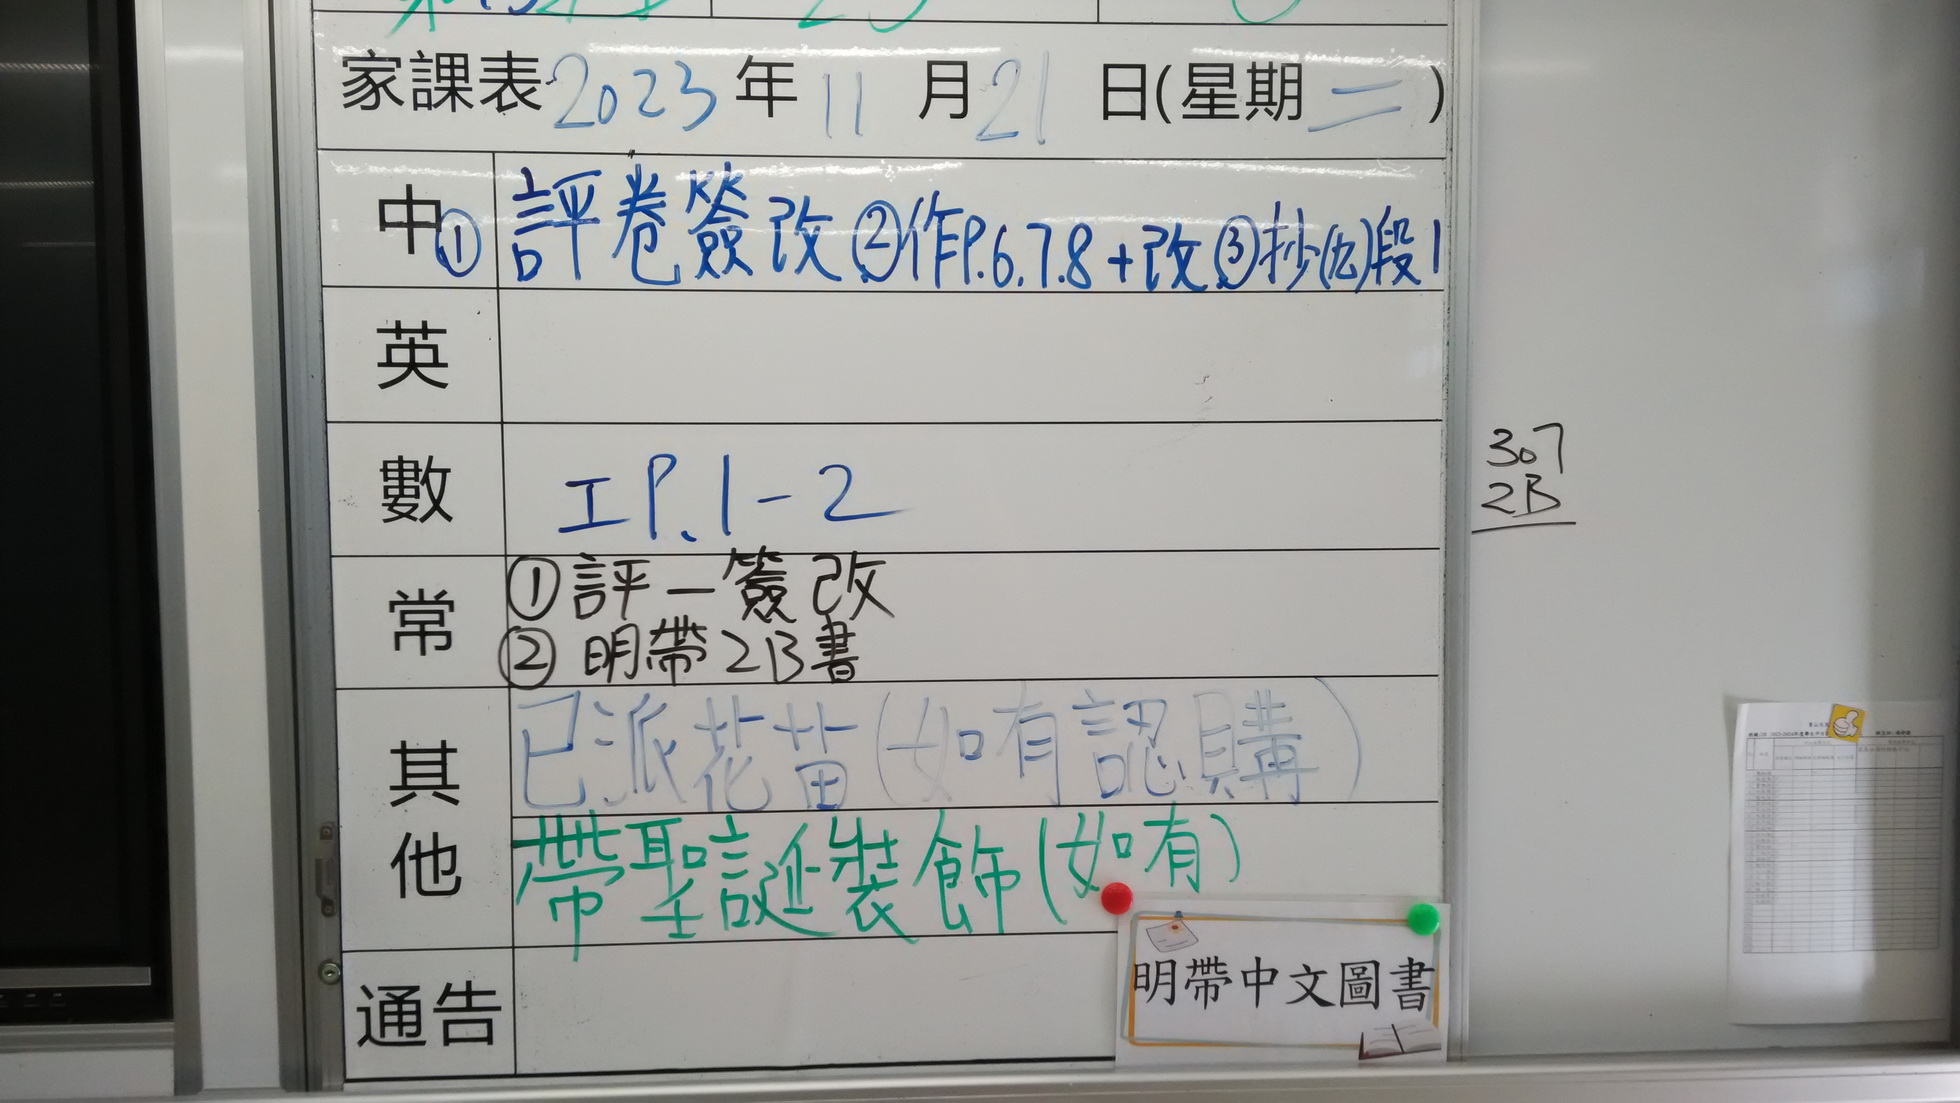 家課表 2023 年 11 月 21 日(星期 二 )
中 ①評卷簽改②作P.6.7.8+改③抄(九)段1
英
數 工P.1-2
307
2B
常 ①評一簽改
②明帶2B書
其他 已派花苗(如有認購)
帶聖誕裝飾(如有)
通告
明帶中文圖書